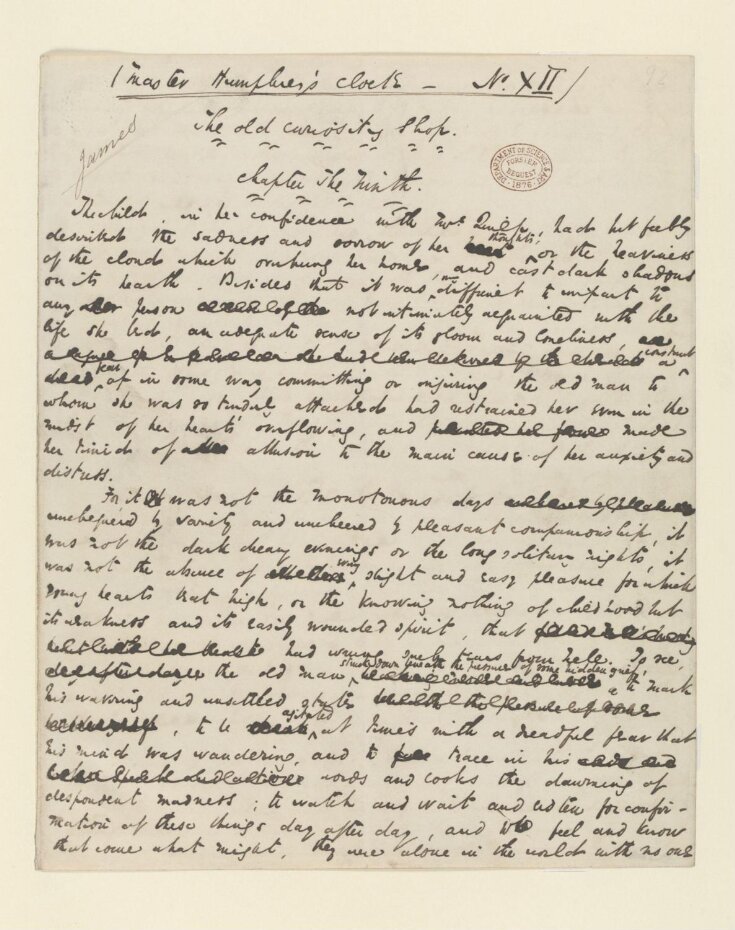 (Master Humphrey's Clock — No. XII)
James
The old curiosity Shop.
DEPARTMENT OF SCIENCE & ART
FORSTER
BEQUEST
1876
Chapter The Ninth.
The child, in her confidence with Mrs. Quilp, had but feebly
described the sadness and sorrow of her thoughts, or the heaviness
of the cloud which overhung her home, and cast dark shadows
on its hearth. Besides that it was very difficult to impart to
any person not intimately acquainted with the
life she led, an adequate sense of its gloom and loneliness, a constant
fear of in some way committing or injuring the old man to
whom she was so tenderly attached had restrained her even in the
midst of her heart's overflowing, and made
her timid of allusion to the main cause of her anxiety and
distress.
For, it was not the monotonous days
unchequered by variety and uncheered by pleasant companionship, it
was not the dark dreary evenings or the long solitary nights, it
was not the absence of every slight and easy pleasure for which
young hearts beat high, or the knowing nothing of childhood but
its weakness and its easily wounded spirit, that
had wrung such tears from Nell. To see
the old man struck down beneath the pressure of some hidden grief, to mark
his wavering and unsettled state
, to be agitated at times with a dreadful fear that
his mind was wandering, and to trace in his
words and looks the dawning of
despondent madness; to watch and wait and listen for confir-
mation of these things day after day, and to feel and know
that come what might, they were alone in the world with no one